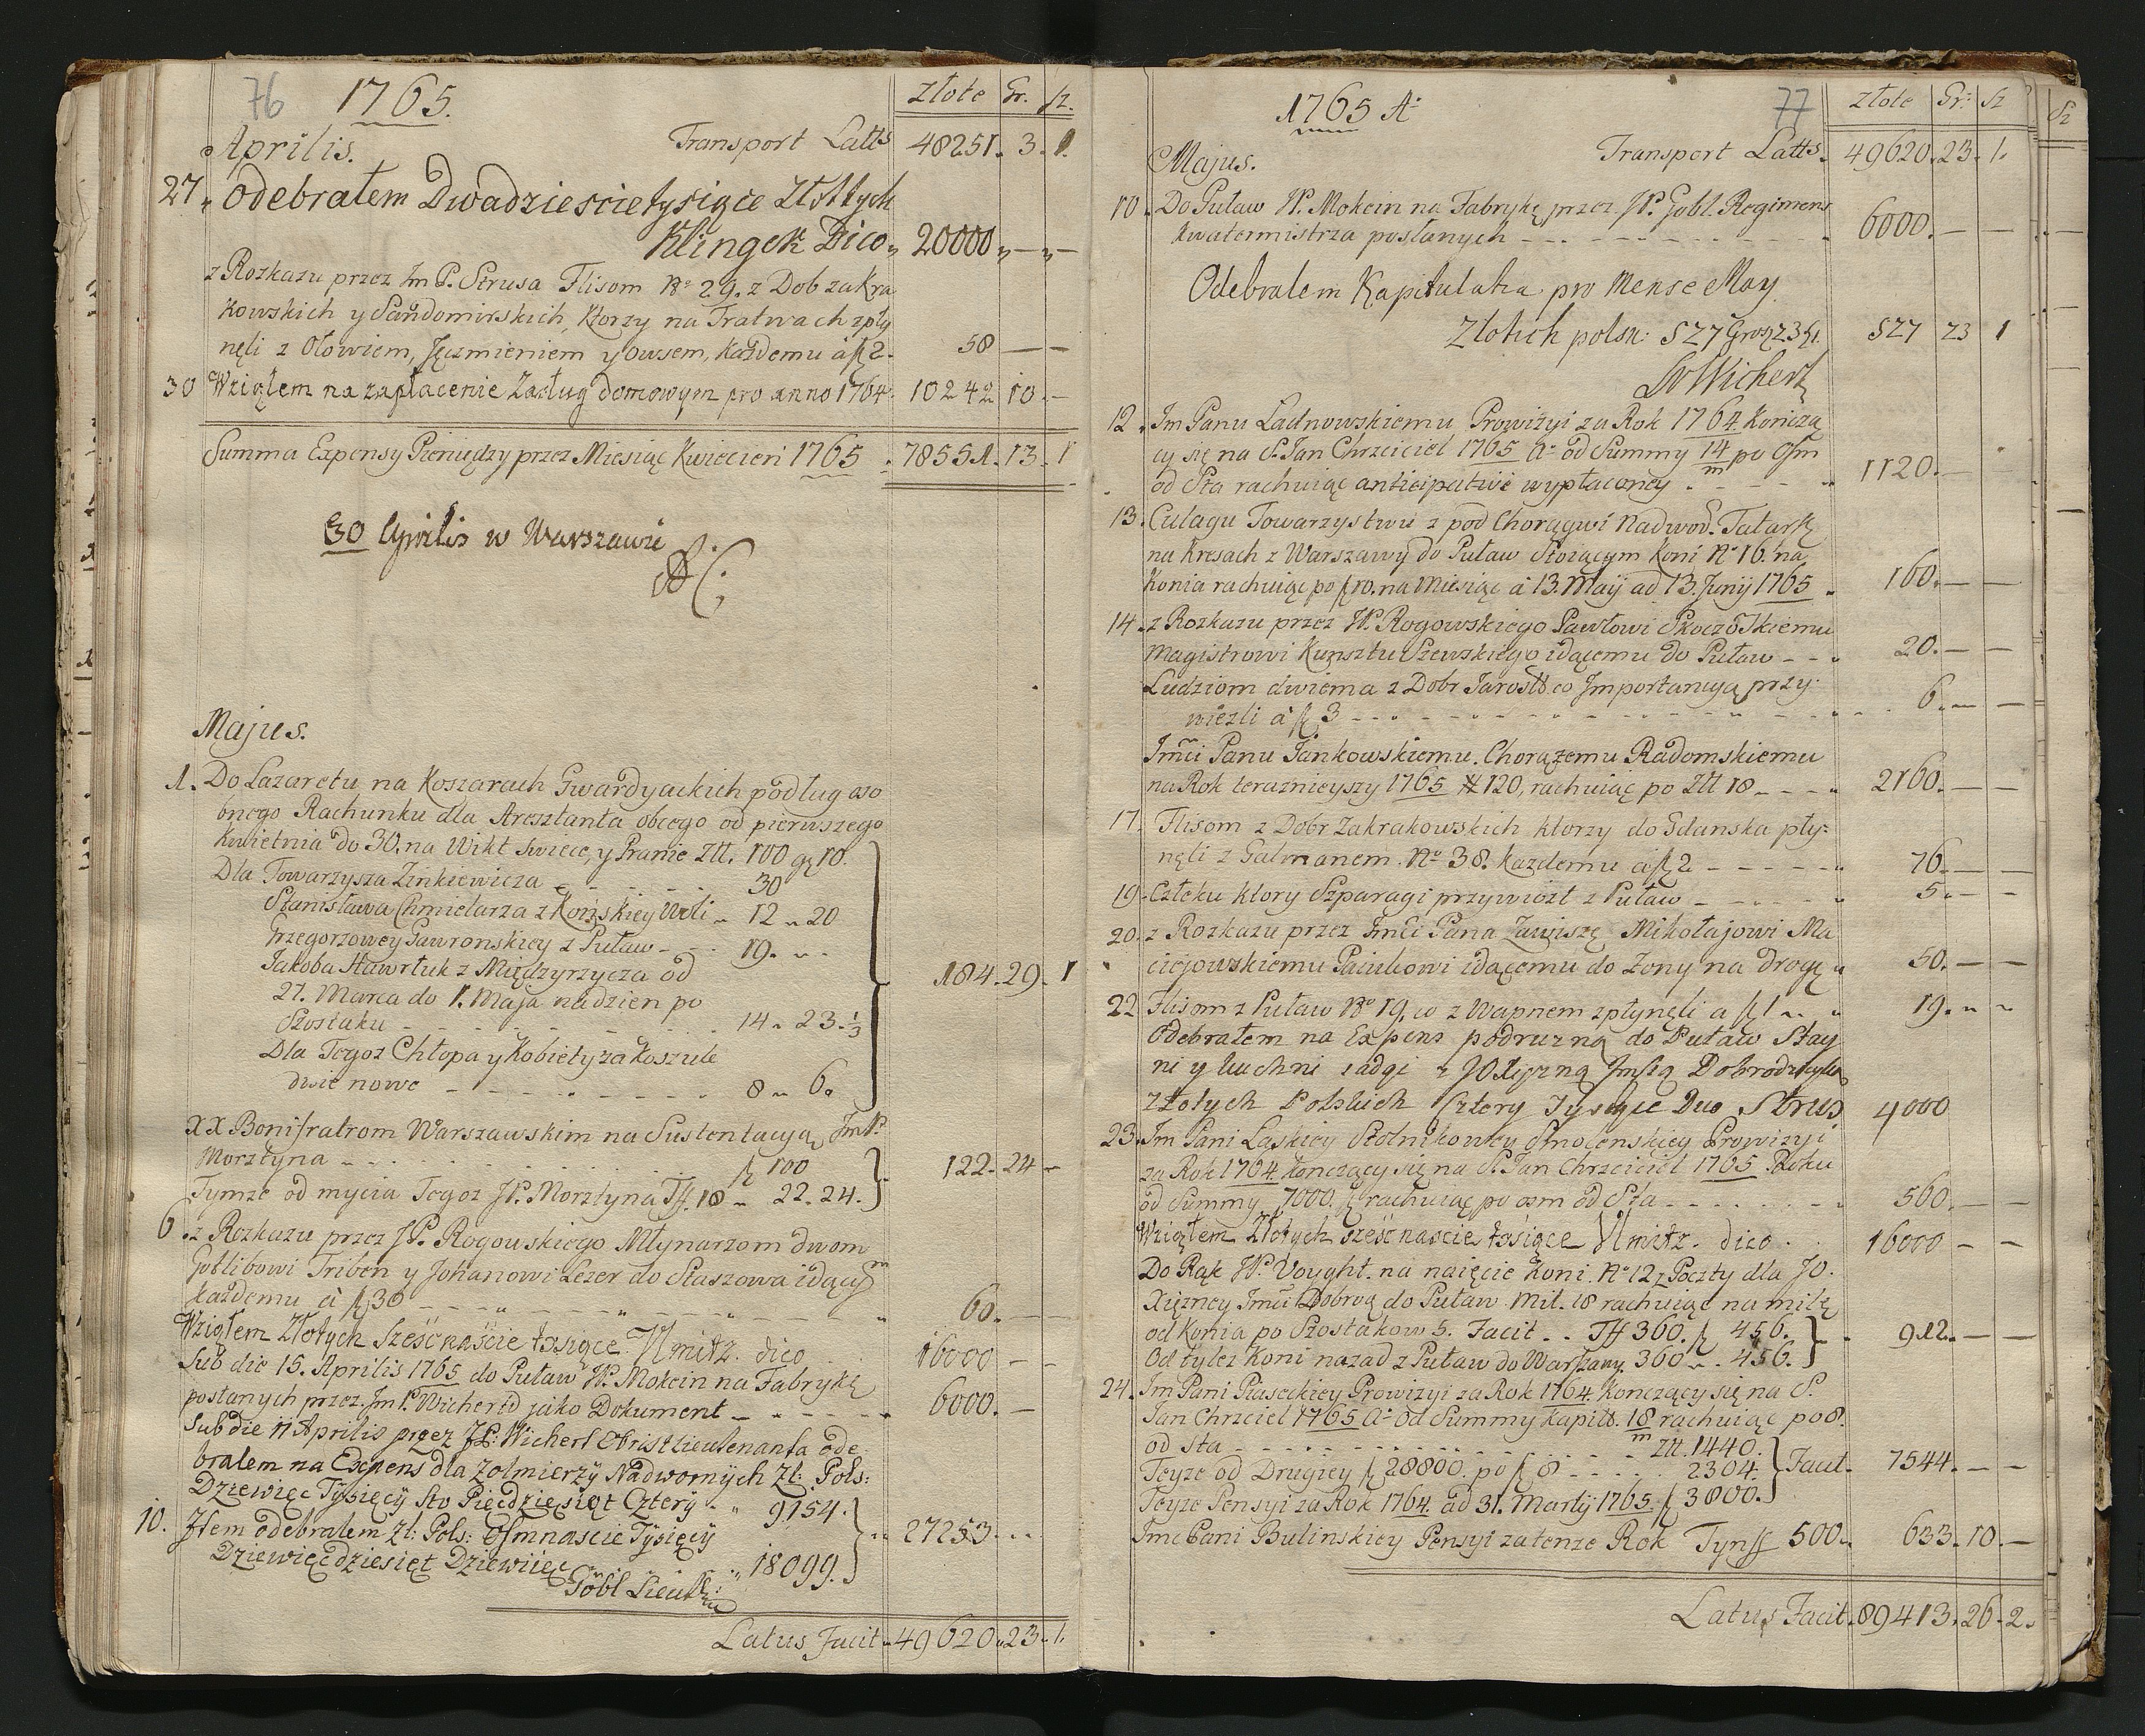 76
1765.
Złote Gr. sz.
Aprilis. Transport Latts 48251. 3. 1.
27. Odebrałem Dwadziescie tysięce Złłtych
Klingek Dico 20000 — —
z Rozkazu przez Im P. Strusa Flisom No 29. z Dob zakra
kowskich y Sandomirskich, Ktorzy na Tratwach zpły
nęli z Ołowiem, Jęczmieniem y Owsem, Każdemu á f 2. 58 — —
30 Wziąłem na zapłacenie Zasług domowym pro anno 1764. 10242 10. —
Summa Expensy Pieniędzy przez Miesiąc Kwiecień 1765. 78551. 13. 1
30 Aprilis w Warszawie
Majus.
1. Do Lazaretu na Koszarach Gwardyackich podług oso
bnego Rachunku dla Aresztanta obcego od pierwszego
Kwietnia do 30. na Wikt swiece, y Pranie Złł. 100 gę 10.
Dla Towarzysza Zinkiewicza - - - - 30
Stanisława Chmielarza z Końskiey Woli 12 " 20
Grzegorzowey Gawronskiey z Puław - - - 19. " -
Jakoba Hawrłuk z Międzyrzycza od 184. 29. 1
27. Marca do 1. Maja na dzien po
Szostaku - - - - - 14 " 23 1/3
Dla Tegoz Chłopa y Kobiety za Koszule
dwie nowe - - - - 8 " 6.
XX Bonifratrom Warszawskim na Sustentacyą Jm P.
Morsztyna - - - - f 100 122. 24 -
Tymze od mycia Tegoz JP. Morsztyna Tff. 18 " 22. 24.
6. z Rozkazu przez JP. Rogowskiego Młynarzom dwom
Gotlibowi Triben y Johanowi Lezer do Staszowa idącym
każdemu á f 30 - - - - 60. — —
Wziąłem Złotych Sześćnaście tysięce Kmitz. dico . . 16000 - -
Sub die 15. Aprilis 1765 do Puław W. Mokcin na Fabrykę
posłanych przez Jm P. Wicherld jako Dokument - - - - 6000. —
Sub die 11 Aprilis przez JP: Wichert Obristlieutenanta ode-
brałem na Expens dla Zołmierzÿ Nadwornÿch Zł: Pols:
Dziewięc Tysięcÿ Sto Pięćdziesiąt Czterÿ - " 9154.
10. Item odebrałem Zł: Pols: Osmnascie Tÿsięcÿ 27253. . .
Dziewięcdziesięt Dziewiięc . . " 18099.
Göbl Lieut
Latus Facit. 49620. 23. 1.
77
1765 Ao
Złote Gr: Sz
Sz
Majus. Transport Latts. 49620. 23. 1.
10. Do Puław W. Mokcin na Fabrykę przez JP. Gobl. Regimens
Kwatermistrza posłanych - - - - 6000. — —
Odebralem Kapitulatia pro Mense May
Zlotich polsk: 527 Grosz 23 f 1. 527 23 1
Wichert
12. Im Panu Ladnowskiemu Prowizyi za Rok 1764 Koncza
cy się na S. Jan Chrzciciel 1765 Ao od Summy 14 m po Osm
od Sta rachuiąc anticipativè wypłaconey . - - - 1120. —
13. Culagu Towarzystwu z pod Chorągwi Nadwor. Tatarsk
na Kresach z Warszawy do Puław Stoiącym Koni No 16. na
Konia rachuiąc po f 10. na Miesiąc á 13. Maÿ ad 13. Junÿ 1765 160. — —
14. z Rozkazu przez W. Rogowskiego Pawłowi Skoczowskiemu
Magistrowi Kunsztu Szewskiego idącemu do Puław - - 20. — —
Ludziom dwiema z Dobr Jarosł. co Importancyą przy-
wiezli á f 3 - - - - 6. — —
Jmći Panu Jankowskiemu Chorążemu Radomskiemu
na Rok teraznieyszy 1765 # 120, rachuiąc po Złł 18 - - - 2160. — —
17. Flisom z Dobr Zakrakowskich ktorzy do Gdanska pły-
nęli z Galmanem. No 38. każdemu á f 2 - - - - 76. — —
19. Człeku ktory Szparagi przywiozł z Puław - - - - 5. — —
20. z Rozkazu przez Jmći Pana Zawiszę Mikołajowi Ma
ciejowskiemu Paiukowi idącemu do Zony na drogę 50. — —
22 Flisom z Puław No 19. co z Wapnem zpłynęli a f 1 - - 19. " "
Odebrałem na Expens podruzną do Puław Stay
ni y kuchni iadąi z JO Xięzną Jmścią Dobrodzieyką
Złotych Polskich Cztery Tysięce Duo Strus 4000
23. Im Pani Laskiey Stolnikowey Smolenskiey Prowizyi
za Rok 1764. konczący się na S. Jan Chrzciciel 1765 Roku
od Summy 7000. f rachuiąc po osm od Sta - - - - 560. — —
Wziąłem Złotych sześćnascie tysięce Kmitz. dico . . 16000 - -
Do Rąk W. Voyght. na naięcie Koni. No 12, Poczty dla JO.
Xięzney Jmći Dobroą do Puław Mil. 18 rachuiąc na milę
od Konia po Szostakow 5. Facit . . Tff 360. f 456. 912. — —
Od tylez Koni nazad z Puław do Warszawy. 360 " . 456.
24. Im Pani Piaseckiey Prowizyi za Rok 1764. Konczący się na S.
Jan Chrzciel 1765 Ao od Summy Kapitł. 18 m rachuiąc po 8.
od sta - - - - Złł. 1440.
Teyze od Drugiey f 28800. po f 8 - - - - 2304. Facit. 7544. — —
Teyze Pensyi za Rok 1764. ad 31. Martÿ 1765. f 3800.
Jmć Pani Bulinskiey Pensyi za tenze Rok Tynff 500. 633. 10. —
Latus Facit. 89413. 26. 2.